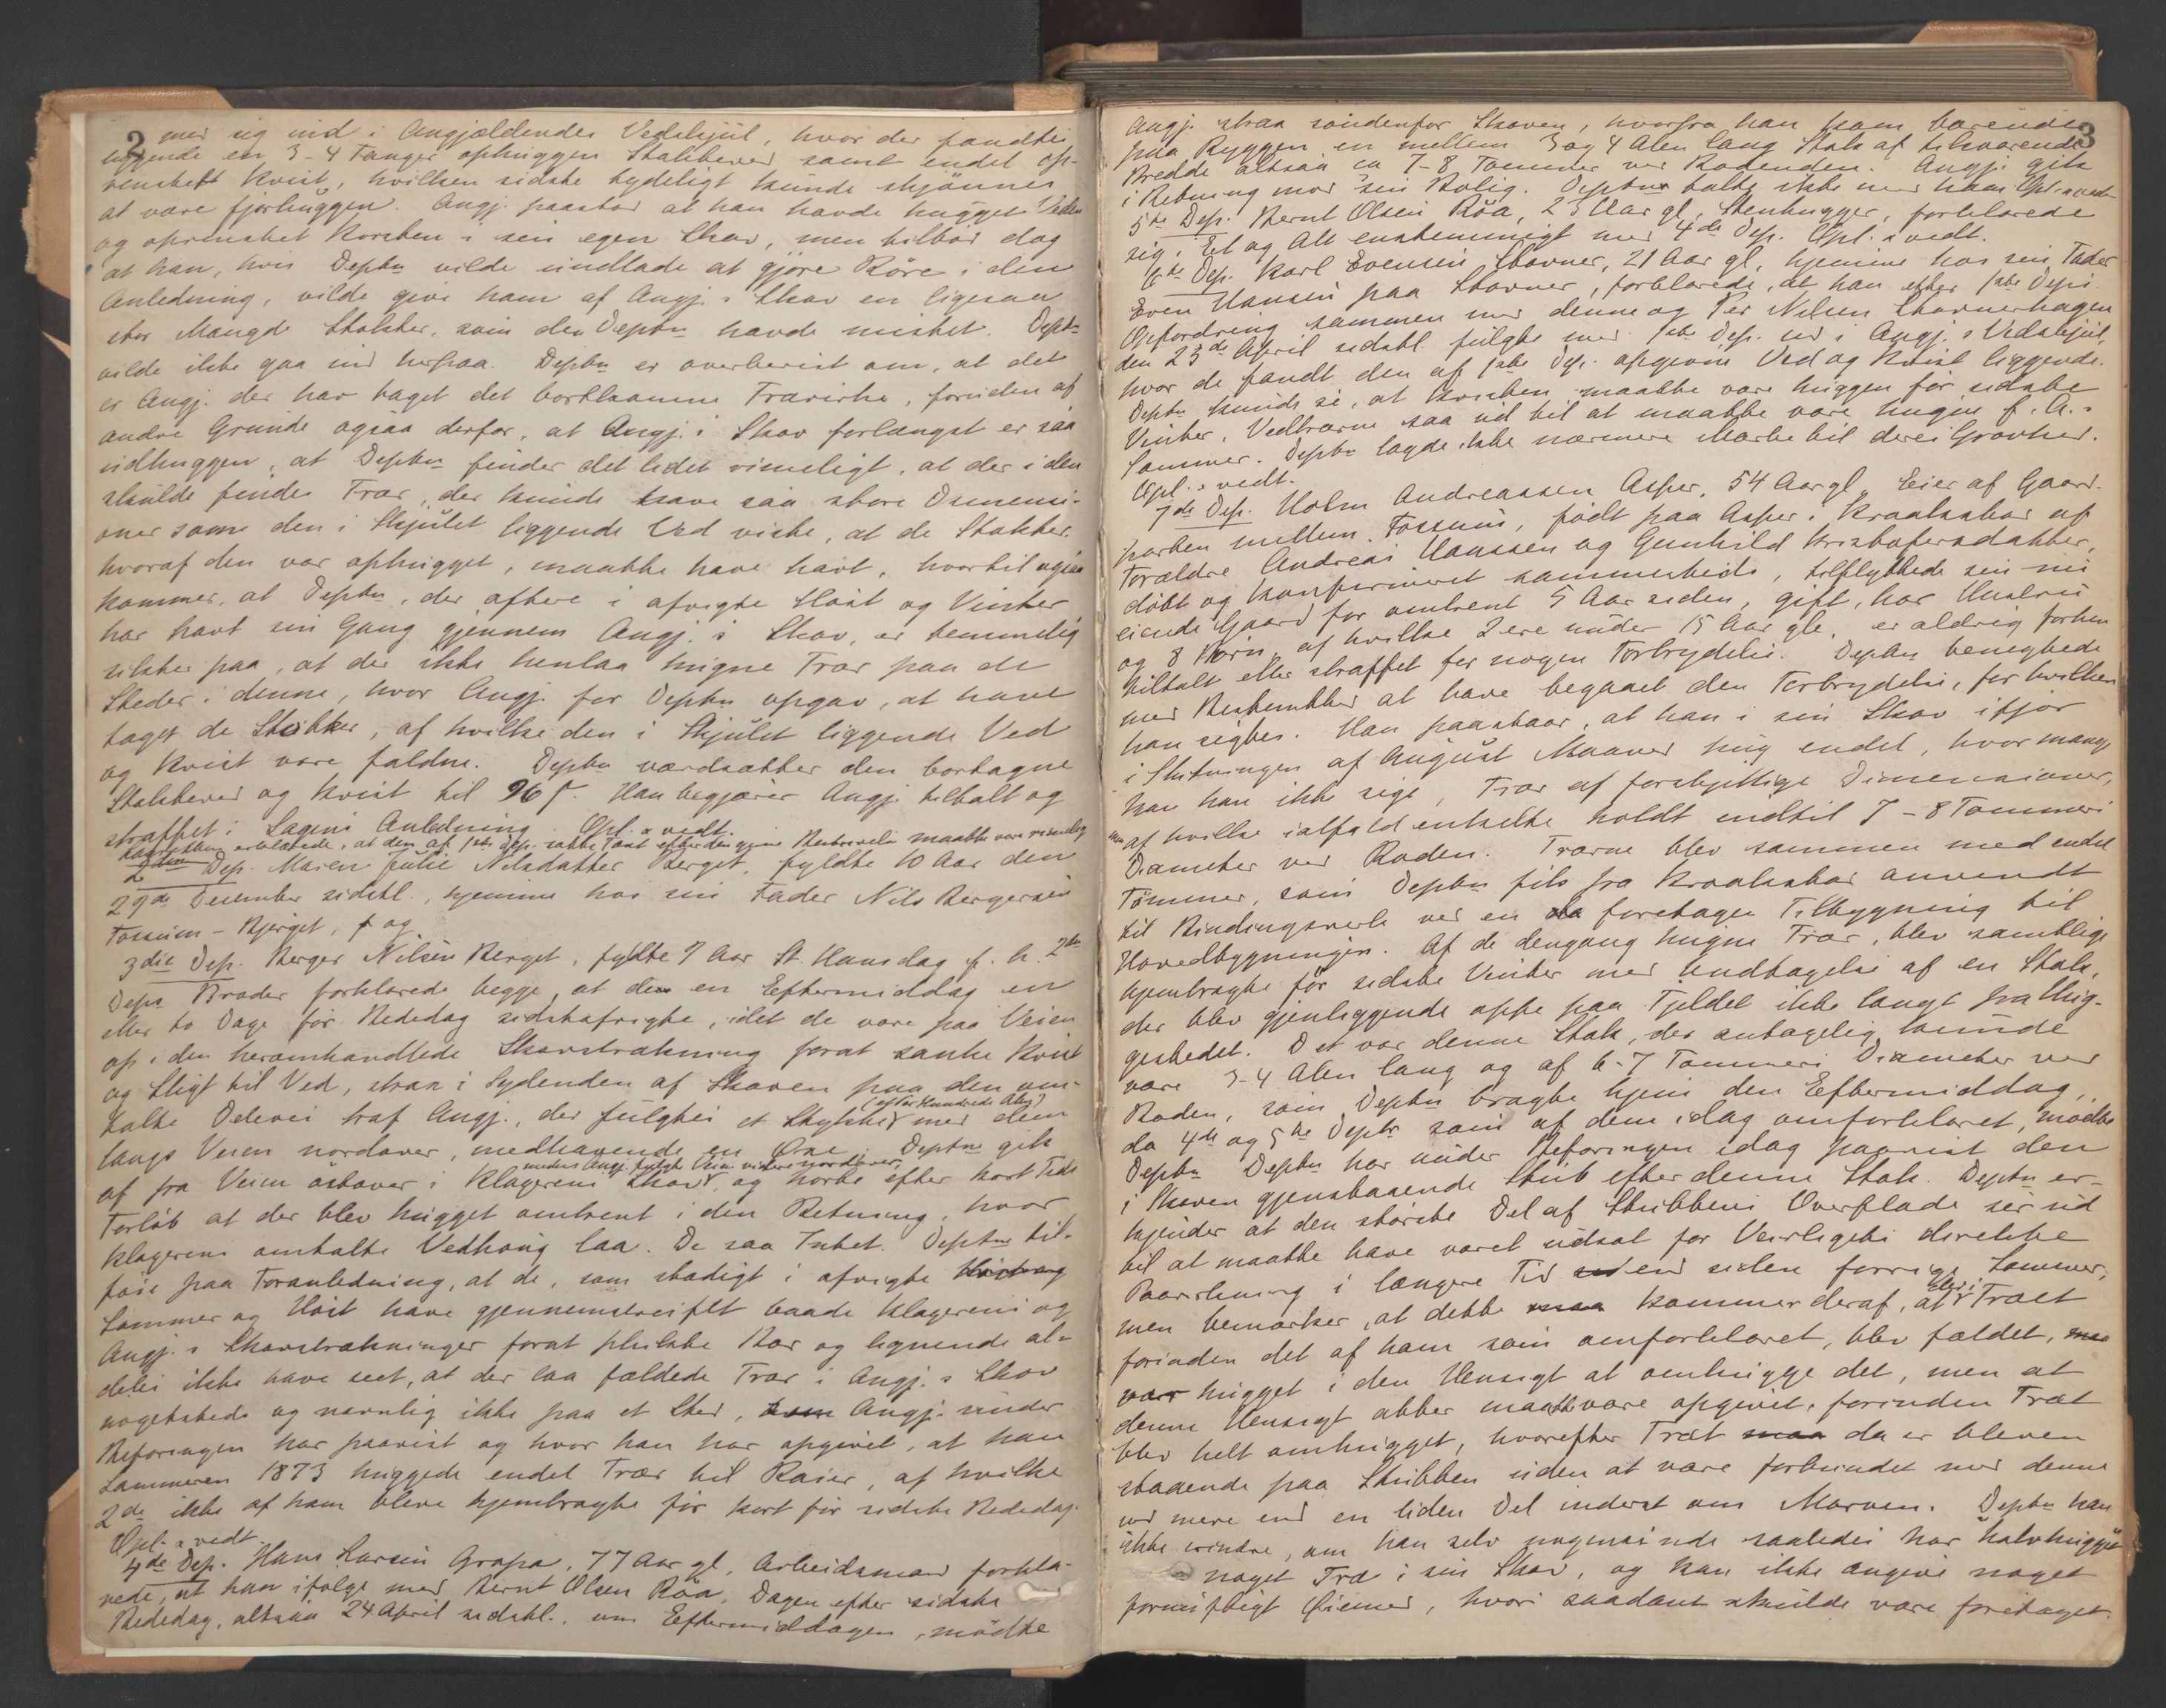 2
med sig ind i Angjældendes Vedskjul, hvor der fandtes
liggende en 3-4 Fauger ophuggen Stakkeved samt endel op-
rensket Kvist, hvilken sidste tydeligt kunde skjønnes
at være fjorhuggen. Angj. paastod at han havde hugget Veden
og oprensket Kvisten i sin egen Skov, men tilbød dog
at han, hvis Deptn vilde undlade at gjøre Røre i den
Anledning, vilde give ham af Angj.s Skov en ligesaa
stor Mængde Stokker, som den Deptn havde mistet. Deptn
vilde ikke gaa ind herpaa. Deptn er overbevist om, at det
er Angj. der har taget det bortkomne Travirke, foruden af
andre Grunde ogsaa derfor, at Angj.s Skov forlængst er saa
udhuggen, at Deptn finder det lidet rimeligt, at der i den
skulde findes Trær, der kunde have saa store Dimensi-
oner som den i Skjulet liggende Ved viste, at de Stokker,
hvoraf den var ophugget, maatte have havt, hvortil ogsaa
kommer, at Deptn, der oftere i afvigte Høst og Vinter
har havt sin Gang gjennem Angj.s Skov, er temmelig
sikker paa, at der ikke henlaa hugne Trær paa de
Steder i denne, hvor Angj. for Deptn opgav, at have
taget de Stokker, af hvilke den i Skjulet liggende Ved
og Kvist vare faldne. Deptn værdsætter den borttagne
Stakkeved og Kvist til 96 ſ. Han begjærer Angj. tiltalt og
straffet i Sagens Anledning. Opl. & vedt.
2den Dep. Maren Julie Nilsdatter Berget, fyldte 10 Aar den
29de December sidstl., hjemme hos sin Fader Nils Bergersen
Fossum-Bjerget, og
3die Dep. Berger Nilsen Berget, fyldte 7 Aar St. Hansdag f. A. 2den
Deps Broder forklarede begge, at de en Eftermiddag en
eller to Dage før Bededag sidstafvigte, idet de vare paa Veien
op i den heromhandlede Skovstrækning forat sanke Kvist
og Sligt til Ved, strax i Sydenden af Skoven paa den om-
talte Delevei traf Angj., der fulgtes et Stykke (et Par Hundrede Alen) med dem
langs Veien nordover, medhavende en Øxe. Deptne gik
af fra Veien østover i Klagerens Skov, medens Angj. fulgte Veien videre nordover, og hørte efter kort Tids
Forløb at der blev hugget omtrent i den Retning, hvor
Klagerens omtalte Vedhaug laa. De saa Intet. Deptne til-
føie paa Foranledning, at de, som stadigt i afvigte
Sommer og Høst have gjennemstreifet baade Klagerens og
Angj.s Skovstrækninger forat plukke Bær og lignende al-
deles ikke have seet, at der laa fældede Trær i Angj.s Skov
nogetsteds og navnlig ikke paa et Sted, som Angj. under
Befaringen har paavist og hvor han har opgivet, at han
Sommeren 1873 huggede endel Trær til Raier, af hvilke
2de ikke af ham bleve hjembragte før kort før sidste Bededag.
Opl. & vedt.
4de Dep. Hans Larsen Grapa, 77 Aar gl, Arbeidsmand forkla-
rede, at han ifølge med Bernt Olsen Röa, Dagen efter sidste
Bededag, altsaa 24 April sidstl., om Eftermiddagen, mødte
3
Angj. strax søndenfor Skoven, hvorfra han kom bærende
paa Ryggen en mellem 3 og 4 Alen lang Stok af tilsvarende
Bredde altsaa ca 7-8 Tommer ved Rodenden. Angj. gik
i Retning mod sin Bolig. Deptn talte ikke med ham. Opl. & vedt.
5te Dep. Bernt Olsen Röa, 23 Aar gl, Stenhugger, forklarede
sig i Et og Alt enstemmigt med 4de Dep. Opl. & vedt.
6te Dep. Karl Evensen Stovner, 21 Aar gl, hjemme hos sin Fader
Even Hansen paa Stovner, forklarede, at han efter 1ste Deps
Opfordring sammen med denne og Per Nilsen Stovnerhagen
den 23de April sidstl. fulgte med 1ste Dep. ud i Angj.s Vedskjul,
hvor de fandt den af 1ste Dep. opgivne Ved og Kvist liggende.
Deptn kunde se, at Kvisten maatte være huggen før sidste
Vinter. Vedtrærne saa ud til at maatte være hugne f. A.s
Sommer. Deptn lagde ikke nærmere Mærke til deres Grovhed.
Opl. & vedt.
7de Dep. Holm Andreassen Asper, 54 Aar gl, Eier af Gaard-
parten mellem Fossum, født paa Asper i Kraakstad af
Forældre Andreas Hanssen og Gunhild Kristofersdatter,
døbt og konfirmeret sammesteds, tilflyttede sin nu
eiende Gaard for omtrent 5 Aar siden, gift, har Hustru
og 8 Børn, af hvilke 2 ere under 15 Aar gle, er aldrig forhen
tiltalt eller straffet for nogen Forbrydelse. Deptn benegtede
med Bestemthed at have begaaet den Forbrydelse, for hvilken
han sigtes. Han paastaar, at han i sin Skov ifjor
i Slutningen af August Maaned hug endel, hvormange
kan han ikke sige, Trær af forskjellige Dimensioner,
men af hvilke ialfald enkelte holdt indtil 7-8 Tommer i
Diameter ved Roden. Trærne blev sammen med endel
Tømmer, som Deptn fik fra Kraakstad anvendt
til Bindingsverk ved en da foretagen Tilbygning til
Hovedbygningen. Af de dengang hugne Trær, blev samtlige
hjembragte før sidste Vinter med Undtagelse af en Stok,
der blev gjenliggende oppe paa Fjeldet ikke langt fra Hug-
gestedet. Det var denne Stok, der antagelig kunde
være 3-4 Alen lang og af 6-7 Tommers Diameter ved
Roden, som Deptn bragte hjem den Eftermiddag,
da 4de og 5te Deptr som af dem idag omforklaret, mødte
Deptn. Deptn har under Befaringen idag paavist den
i Skoven gjenstaaende Stub efter denne Stok. Deptn er-
kjender at den største Del af Stubbens Overflade ser ud
til at maatte have været udsat for Veirligets direkte
Paavirkning i længere Tid end siden forrige Sommer,
men bemærker, at dette kommer deraf, at Træet
forinden det af ham som omforklaret, blev fældet,
var hugget i den Hensigt at omhugge det, men at
denne Hensigt atter maatte være opgivet, forinden Træt
blev helt omhugget, hvorefter Træt da er bleven
staaende paa Stubben uden at være forbundet med denne
ved mere end en liden Del inderst om Marven. Deptn kan
ikke erindre, om han selv nogensinde saaledes har halvhugget
noget Træ i sin Skov, og kan ikke angive noget
fornuftigt Øiemed, hvori saadant skulde være foretaget.